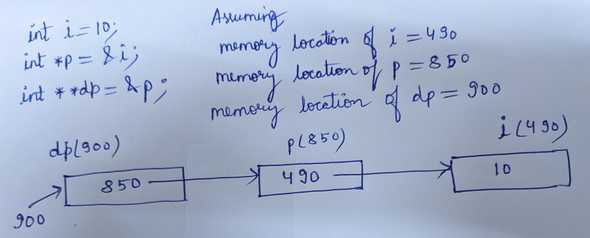 int i=10;
int *p = &i;
int **dp= &p;
Assuming
memory location of i = 490
memory location of p = 850
memory location of dp = 900
dp(900)
p(850)
i(490)
850
490
10
900